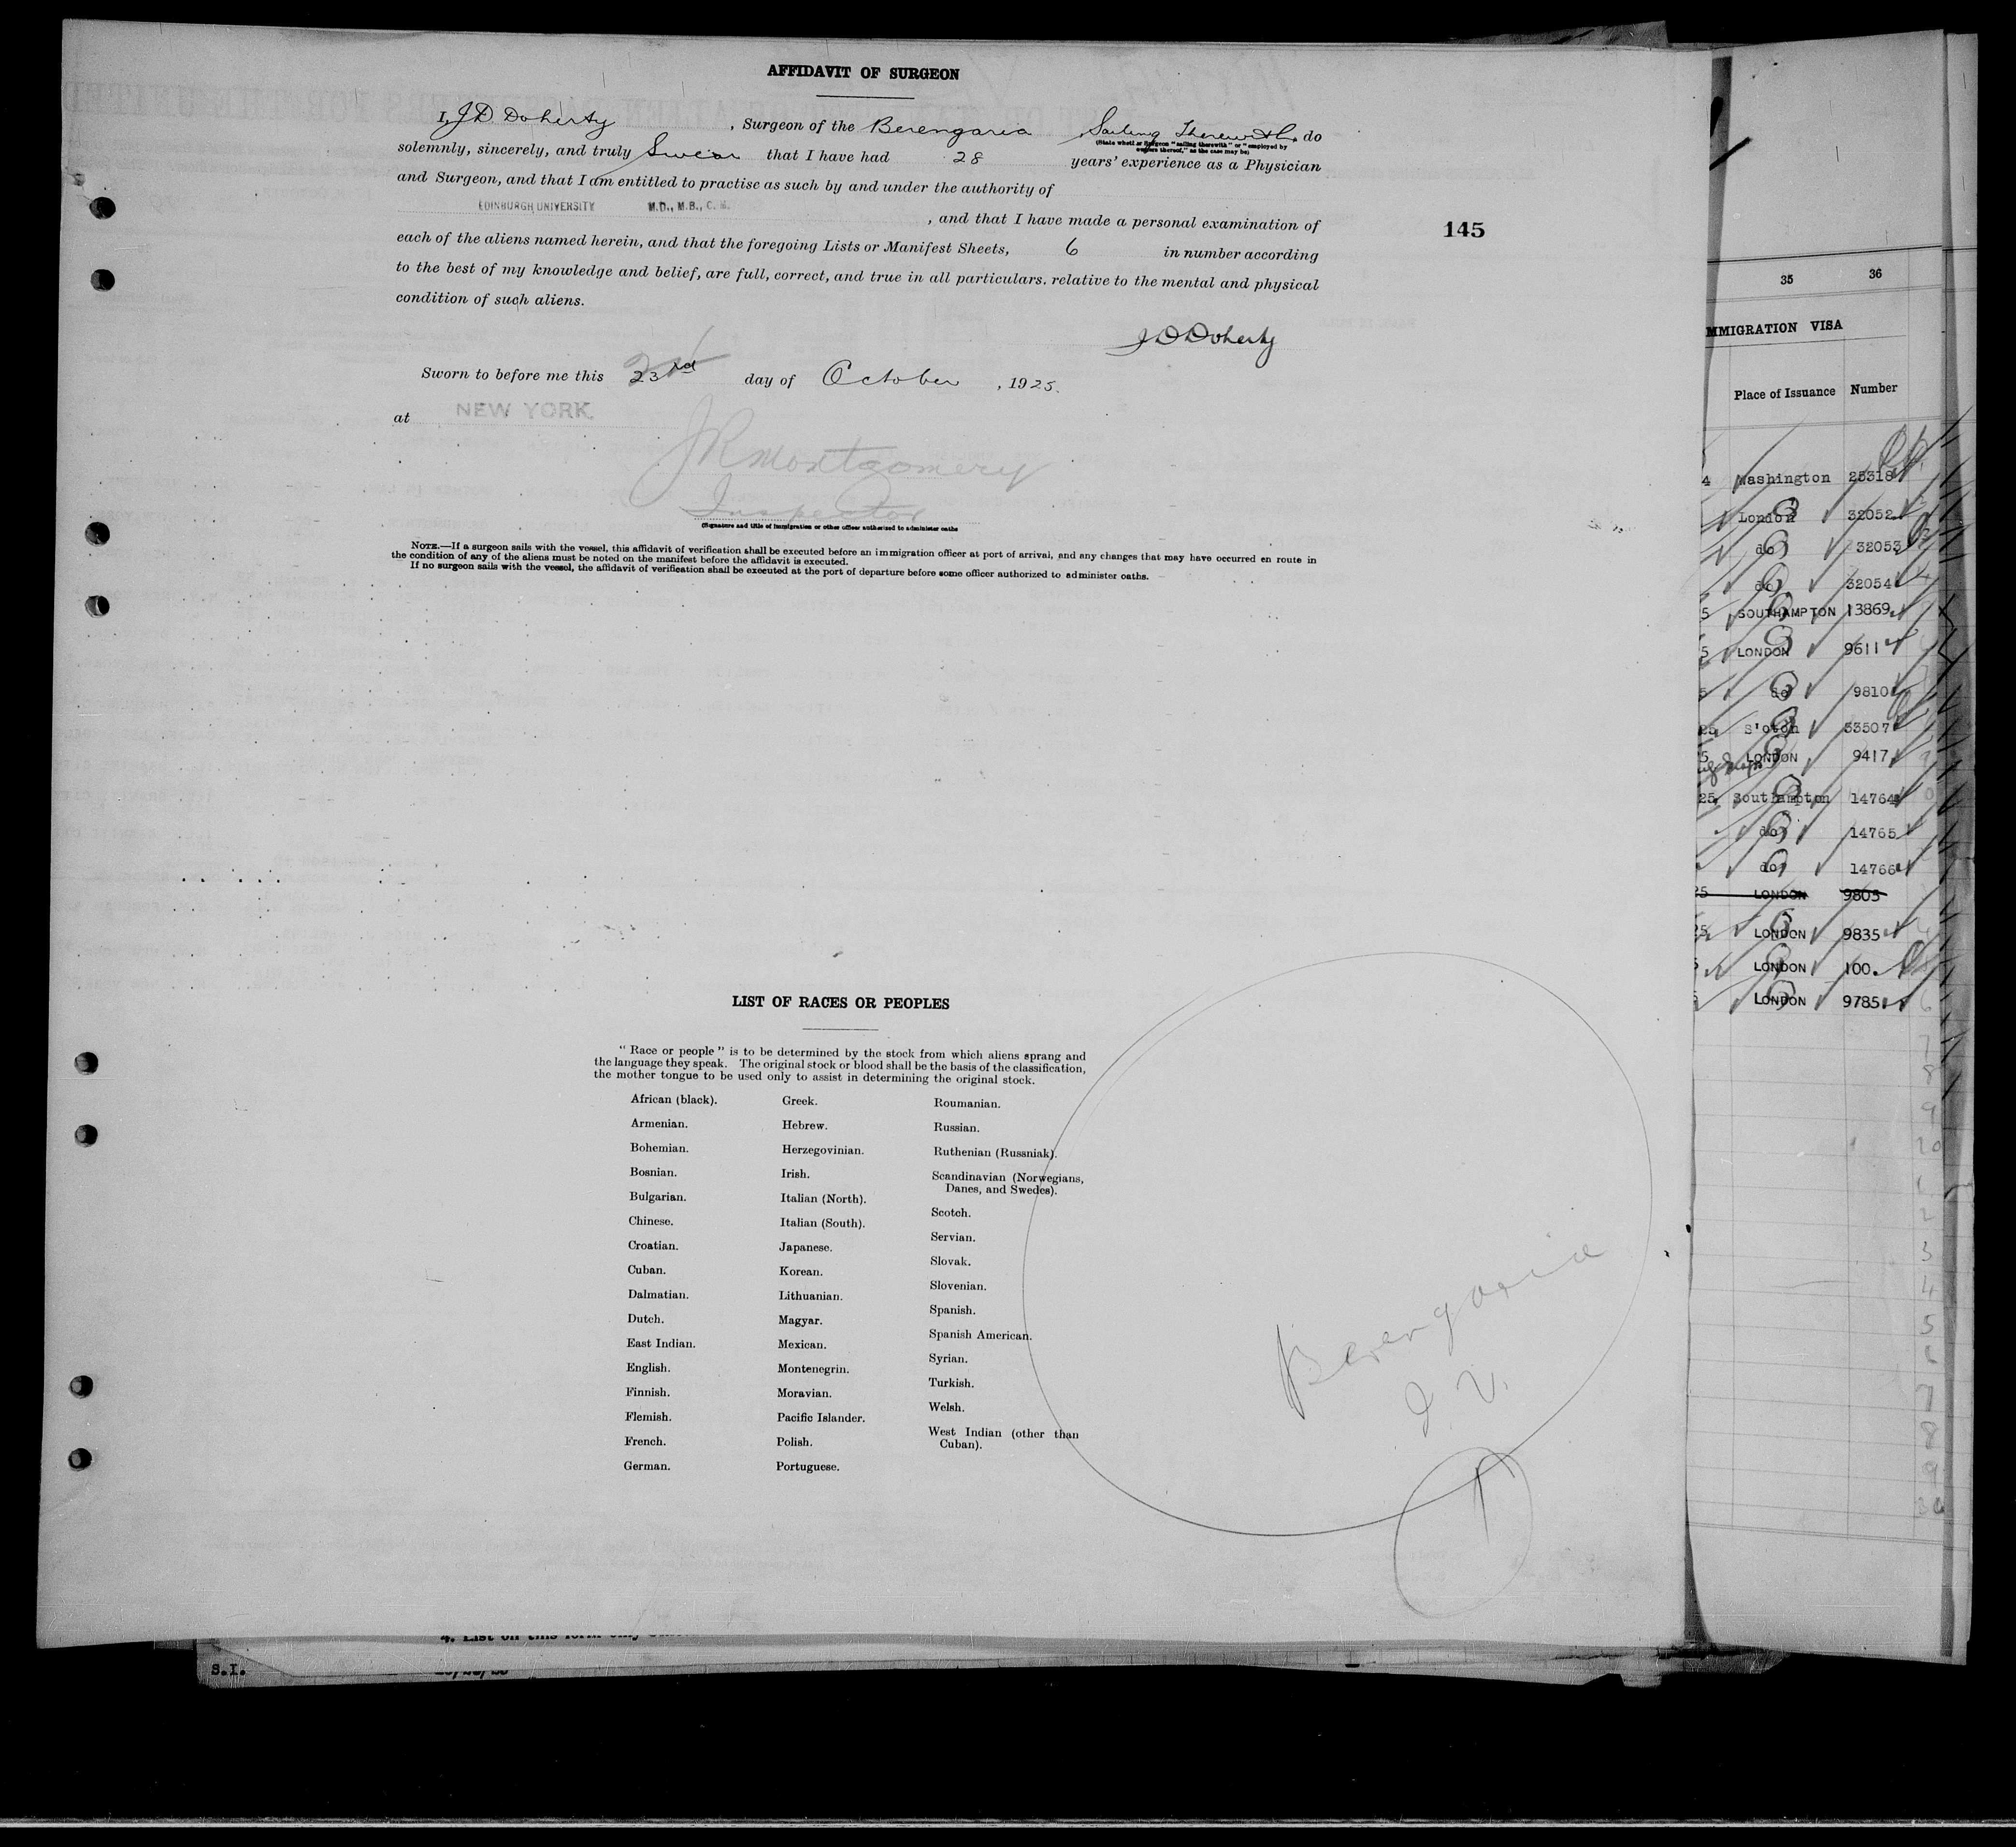 AFFIDAVIT OF SURGEON
I, J D Doherty, Surgeon of the Berengaria Sailing Therewith, do
(State whether Surgeon "sailing therewith" or "employed by
owners thereof," as the case may be)
solemnly, sincerely, and truly Swear that I have had 28 years' experience as a Physician
and Surgeon, and that I am entitled to practise as such by and under the authority of
EDINBURGH UNIVERSITY M.D., M.B., C.M.
, and that I have made a personal examination of
each of the aliens named herein, and that the foregoing Lists or Manifest Sheets, 6 in number according
to the best of my knowledge and belief, are full, correct, and true in all particulars. relative to the mental and physical
condition of such aliens.
J D Doherty
Sworn to before me this 23rd day of October, 1925.
at NEW YORK
J R Montgomery
Inspector
(Signature and title of immigration or other officer authorized to administer oaths
NOTE.—If a surgeon sails with the vessel, this affidavit of verification shall be executed before an immigration officer at port of arrival, and any changes that may have occurred en route in
the condition of any of the aliens must be noted on the manifest before the affidavit is executed.
If no surgeon sails with the vessel, the affidavit of verification shall be executed at the port of departure before some officer authorized to administer oaths.
145
LIST OF RACES OR PEOPLES
"Race or people" is to be determined by the stock from which aliens sprang and
the language they speak. The original stock or blood shall be the basis of the classification,
the mother tongue to be used only to assist in determining the original stock.
African (black).
Armenian.
Bohemian.
Bosnian.
Bulgarian.
Chinese.
Croatian.
Cuban.
Dalmatian.
Dutch.
East Indian.
English.
Finnish.
Flemish.
French.
German.
Greek.
Hebrew.
Herzegovinian.
Irish.
Italian (North).
Italian (South).
Japanese.
Korean.
Lithuanian.
Magyar.
Mexican.
Montenegrin.
Moravian.
Pacific Islander.
Polish.
Portuguese.
Roumanian.
Russian.
Ruthenian (Russniak).
Scandinavian (Norwegians,
Danes, and Swedes).
Scotch.
Servian.
Slovak.
Slovenian.
Spanish.
Spanish American.
Syrian.
Turkish.
Welsh.
West Indian (other than
Cuban).
Berengaria
I.V.
1
S.I.
35 36
MMIGRATION VISA
Place of Issuance Number
4 Washington 25318
London 32052
do 32053
do 32054
5 SOUTHAMPTON 13869
5 LONDON 9611
5 do 9810
25 S'oton 53507
5 LONDON 9417
25 Southampton 14764
do 14765
do 14766
25 LONDON 9805
25 LONDON 9835
5 LONDON 100
5 LONDON 9785
6
7
8
9
20
1
2
3
4
5
6
7
8
9
30